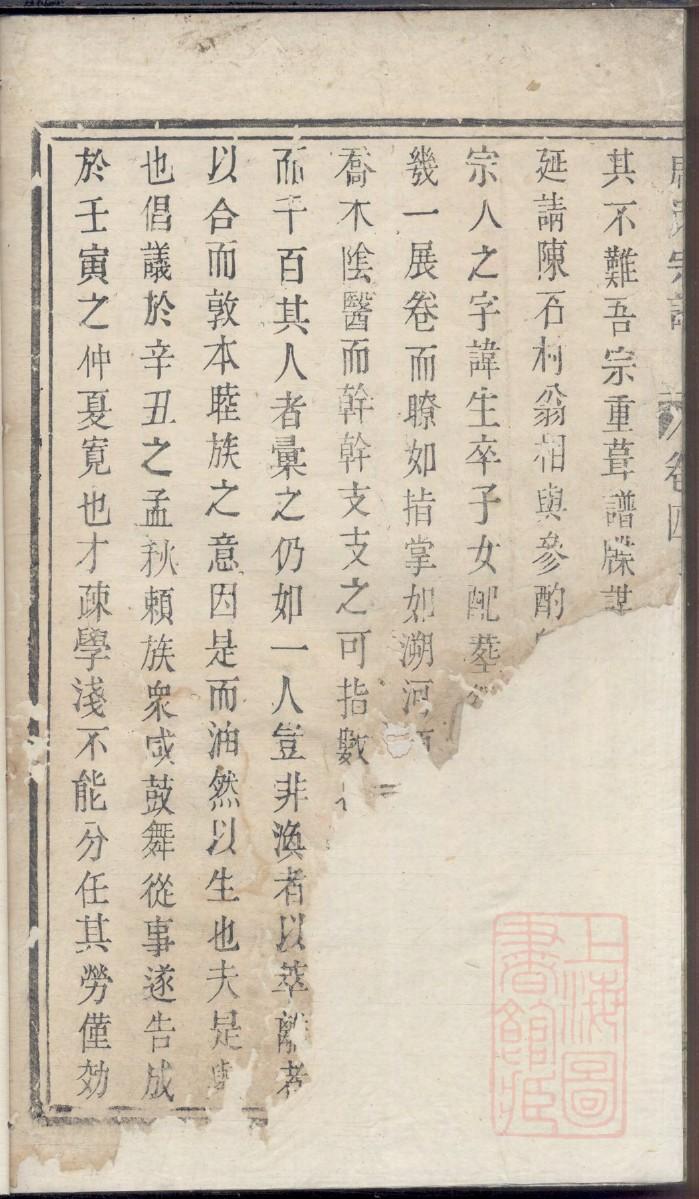 宗譜 卷四
其不難吾宗重葺譜牒謀
延請陳石村翁相與參酌
宗人之字諱生卒子女配塟
幾一展卷而瞭如指掌如溯河
喬木陰翳而幹幹支支之可指數
而千百其人者彙之仍如一人豈非渙者以萃離者
以合而敦本睦族之意因是而油然以生也夫是
也倡議於辛丑之孟秋頼族衆咸鼓舞從事遂告成
於壬寅之仲夏寛也才疎學淺不能分任其勞僅効
上海圖
書館臧